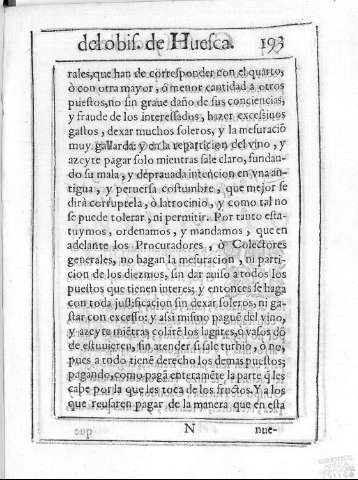 del obis. de Huesca. 193
rales, que han de corresponder con el quarto,
ò con otra mayor, ò menor cantidad à otros
puestos, no sin graue daño de sus conciencias,
y fraude de los interessados, hazer excessiuos
gastos, dexar muchos soleros, y la mesuraciõ
muy gallarda: y en la reparticion del vino, y
azeyte pagar solo mientras sale claro, fundan-
do su mala, y deprauada intencion en vna an-
tigua, y peruersa costumbre, que mejor se
dirà corruptela, ò latrocinio, y como tal no
se puede tolerar, ni permitir. Por tanto esta-
tuymos, ordenamos, y mandamos, que en
adelante los Procuradores, ò Colectores
generales, no hagan la mesuracion, ni parti-
cion de los diezmos, sin dar auiso à todos los
puestos que tienen interes; y entonces se haga
con toda justificacion sin dexar soleros, ni ga-
star con excesso: y assi mismo paguẽ del vino,
y azeyte miẽtras colarẽ los lagares, ò vasos dõ
de estuuieren, sin atender si sale turbio, ò no,
pues a todo tienẽ derecho los demas puestos;
pagando, como pagã enteramẽte la parte q̃ les
cabe por la que les toca de los fructos. Y a los
que reusaren pagar de la manera que en esta
N nue-